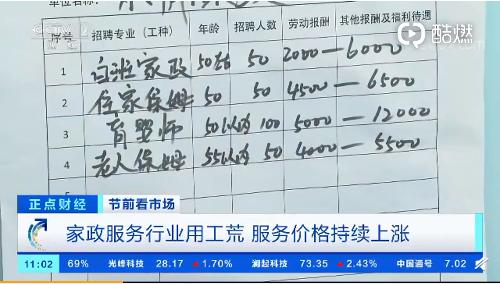 单位名称:
酷燃
序号 招聘专业（工种） 年龄 招聘人数 劳动报酬 其他报酬及福利待遇
1 白班家政 50 50 2000—6000
2 住家保姆 50 50 4500—6500
3 育婴师 50以内 100 5000—12000
4 老人保姆 55以内 50 4000—5500
正点财经 节前看市场
家政服务行业用工荒 服务价格持续上涨
11:02 69% 光峰科技 28.17 ▲1.70% 澜起科技 73.35 ▲2.43% 中国通号 7.02